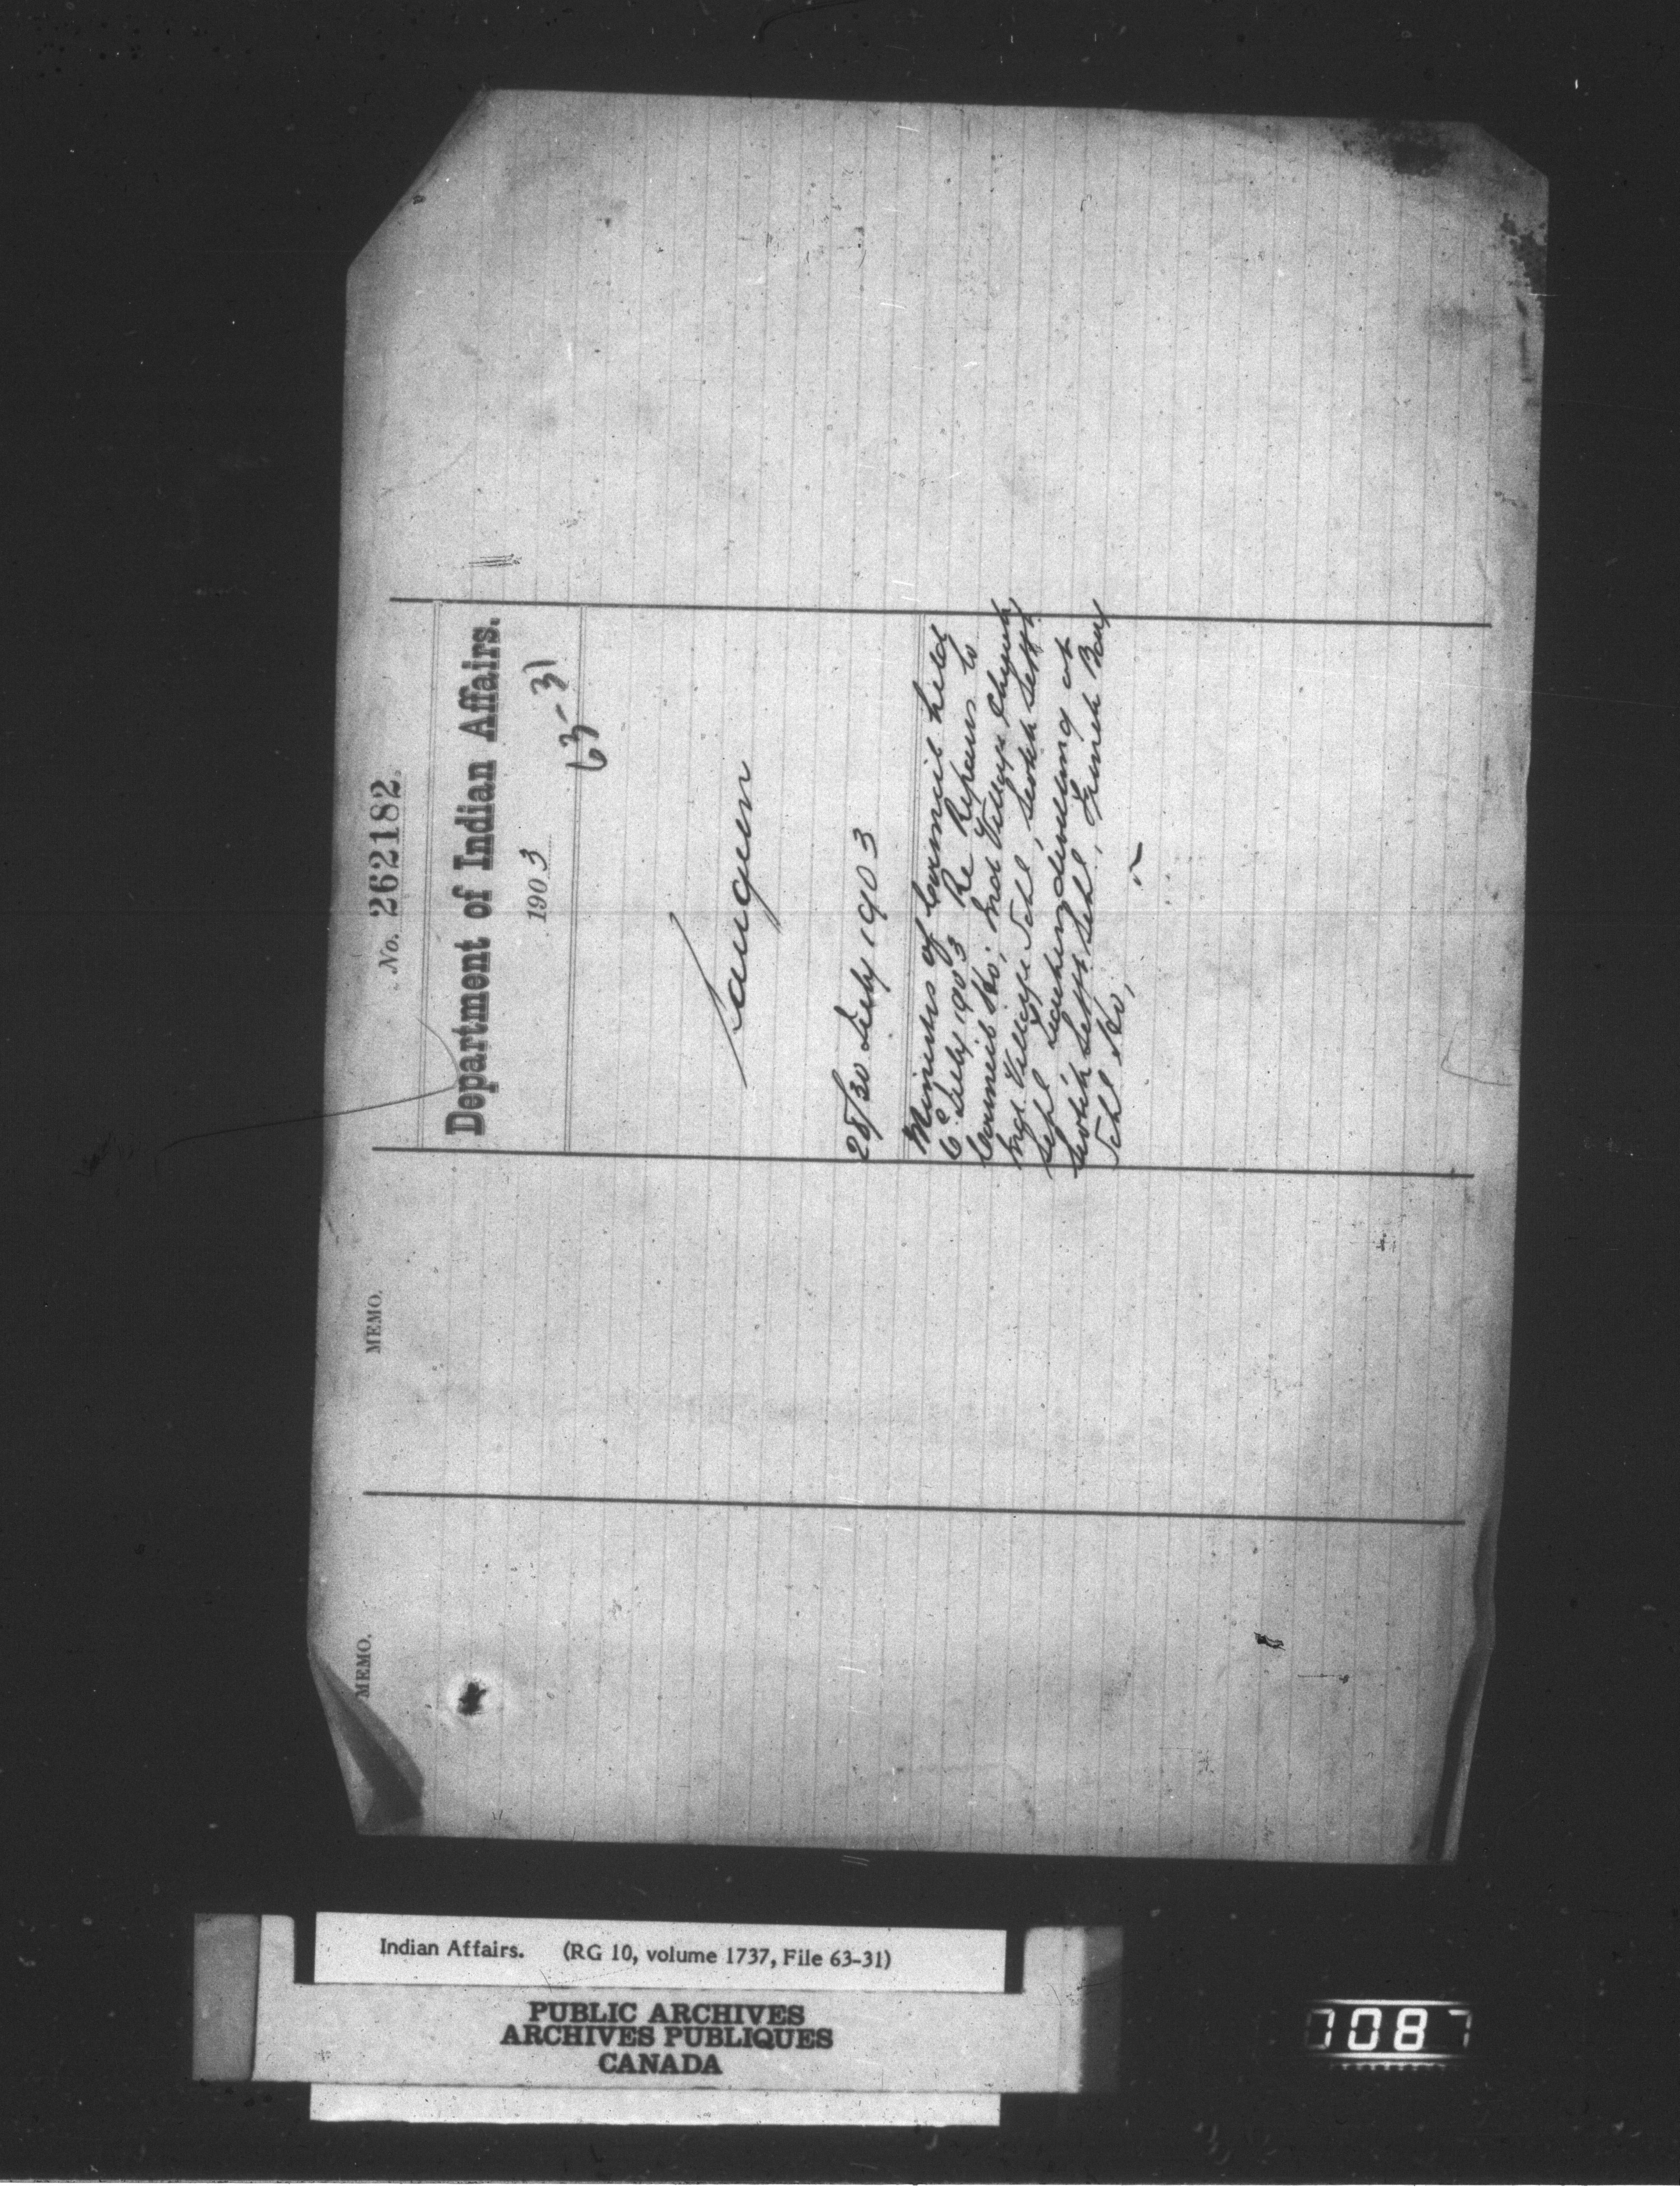 No. 262182.
Department of Indian Affairs.
1903
63-31
Saugeen
28/30 July 1903
Minutes of Council held
6th July 1903 Re Repairs to
Council Ho; Ind Village Church
Ind. Village Schl, Scotch Settt
Schl Teachers dwelling at
Scotch Settt Schl, French Bay
Schl Ho,
MEMO.
MEMO.
Indian Affairs. (RG 10, volume 1737, File 63-31)
PUBLIC ARCHIVES
ARCHIVES PUBLIQUES
CANADA
7087